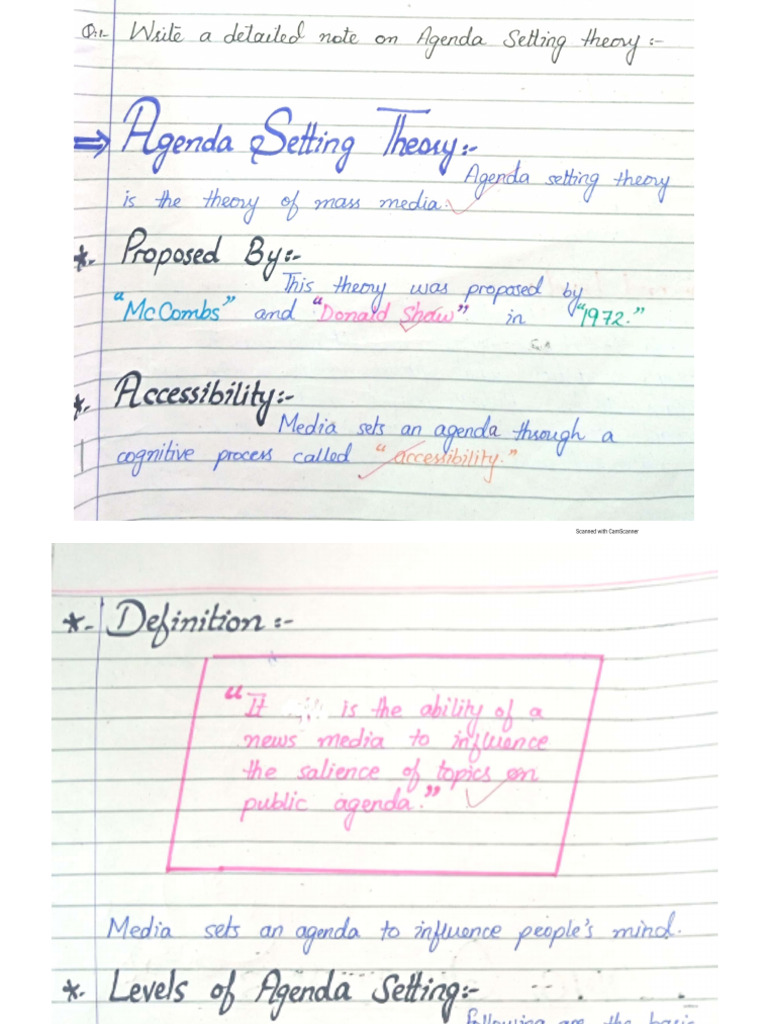 Q:1- Write a detailed note on Agenda Setting theory:-
⇒ Agenda Setting Theory:-
Agenda setting theory
is the theory of mass media.
*- Proposed By:-
This theory was proposed by
"McCombs" and "Donald Shaw" in "1972."
*- Accessibility:-
Media sets an agenda through a
cognitive process called "accessibility."
Scanned with CamScanner
*- Definition:-
"It is the ability of a
news media to influence
the salience of topics on
public agenda."
Media sets an agenda to influence people's mind.
*- Levels of Agenda Setting:-
Following are the basic